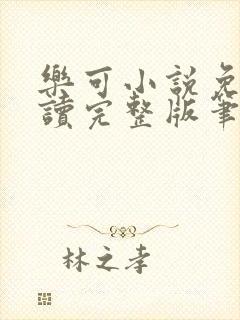 樂可小說免
讀完整版筆
林之孝